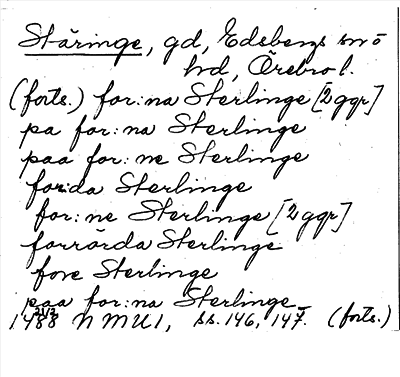 Stäringe, gd, Edsbergs sn o
hd, Örebro l.
(forts.) for:na Sterlinge [2 ggr]
pa for:na Sterlinge
paa for:ne Sterlinge
for:da Sterlinge
for:ne Sterlinge [2 ggr]
forrörda Sterlinge
fore Sterlinge
paa for:na Sterlinge
1488 21/2 N MU1, ss. 146, 147. (forts.)